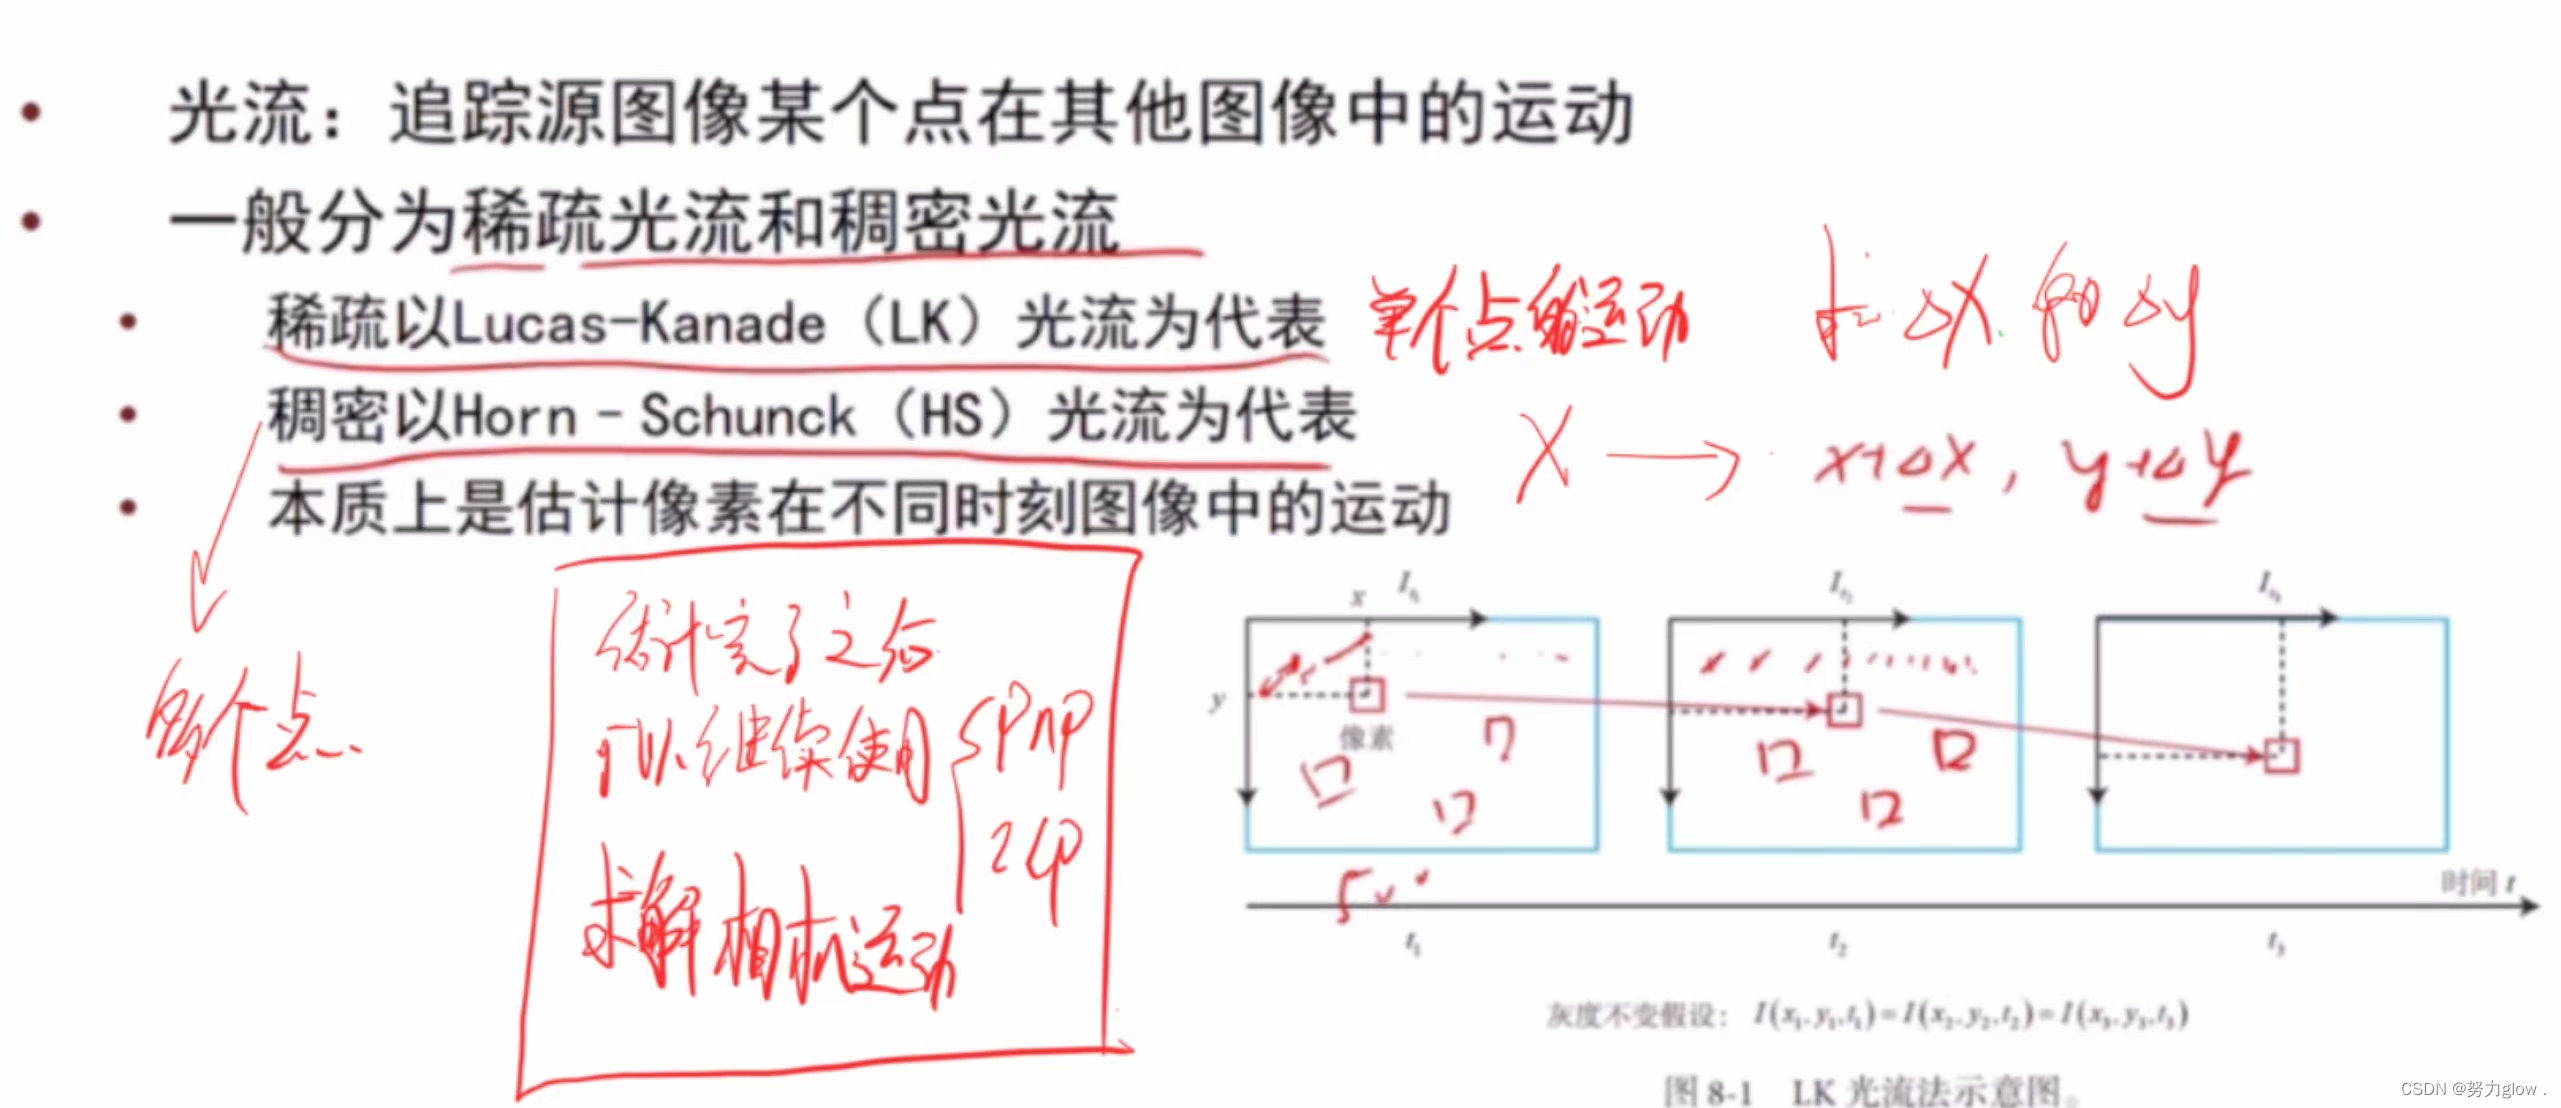 • 光流：追踪源图像某个点在其他图像中的运动
• 一般分为稀疏光流和稠密光流
• 稀疏以Lucas-Kanade（LK）光流为代表
单个点的运动 求 ΔX 和 Δy
• 稠密以Horn - Schunck（HS）光流为代表
X → x+Δx, y+Δy
• 本质上是估计像素在不同时刻图像中的运动
多个点
估计完了之后
可以继续使用
PnP
ICP
求解相机运动
x
I_{t_1}
y
像素
I_{t_2}
I_{t_3}
时间 t
t_1
t_2
t_3
灰度不变假设： I(x_1,y_1,t_1)=I(x_2,y_2,t_2)=I(x_3,y_3,t_3)
图 8-1 LK 光流法示意图。
CSDN @努力glow .